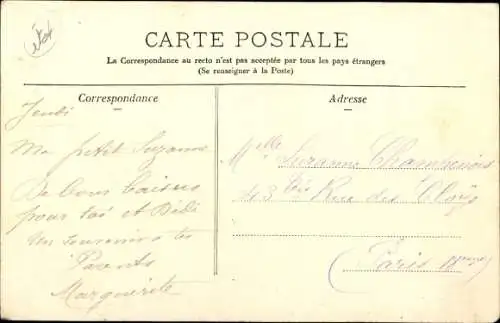 état
CARTE POSTALE
La Correspondance au recto n'est pas acceptée par tous les pays étrangers
(Se renseigner à la Poste)
Correspondance
Adresse
Jeudi
Ma petit Suzanne
De bons baisers
pour toi et Dédé
un souvenir a tes
Parents
Marguerite
Melle Suzanne
43 bis Rue des Cloÿs
Paris